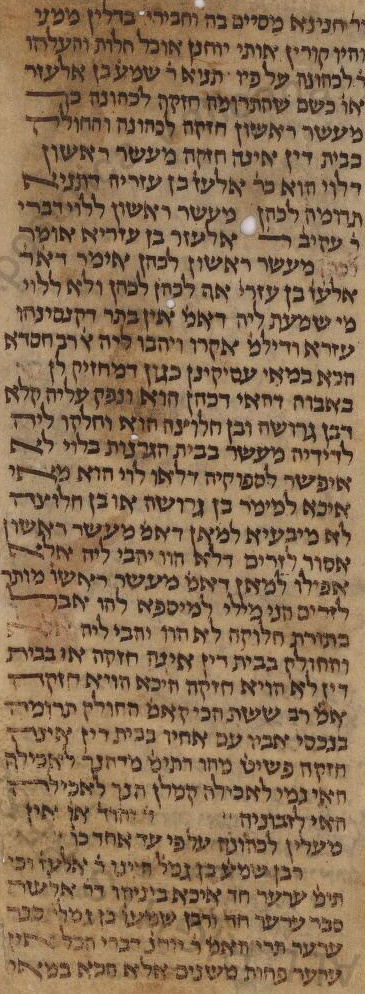 ור׳ חנינא מסיים בה וחבירו׳ בדלין ממני
והיו קורין אותי יוחנן אוכל חלות והעלהו
ר׳ לכהונה על פיו תניא ר׳ שמע׳ בן אלעזר
או׳ כשם שהתרומה חזקה לכהונה כך
מעשר ראשון חזקה לכהונה והחולק
בבית דין אינה חזקה מעשר ראשון
דלוי הוא כר׳ אלעז׳ בן עזריה דתניא
תרומה לכהן מעשר ראשון ללוי דברי
ר׳ עקיב׳ ר׳ אלעזר בן עזריא אומר
מעשר ראשון לכהן אימר דאמ׳
אלעז׳ בן עזרי׳ אף לכהן לכהן ולא ללוי
מי שמעת ליה דאמ׳ אין בתר דקנסינהו
עזרא ודילמ׳ אקרו ויהבו ליה א׳ רב חסדא
הכא במאי עסיקינן כגון דמחזיק לן
באבוה דהאי דכהן הוא ונפק עליה קלא
דבן גרושה ובן חלוצה הוא וחלקו ליה
לדידיה מעשר בבית הגרנות בלוי לא
איפשר לספוקיה דלאו לוי הוא מאי
איכא למימר בן גרושה או בן חלוצה
לא מיבעיא למאן דאמ׳ מעשר ראשון
אסור לזרים דלא הוו יהבי ליה אלא
אפילו למאן דאמ׳ מעשר ראשו׳ מותר
לזרים הני מילי למיספא להו אבל
בתורת חלוקה לא הוו יהבי ליה
והחולק בבית דין אינה חזקה אי בבית
דין לא הויא חזקה היכא הויא חזקה
אמ׳ רב ששת הכי קאמ׳ החולק תרומה
בנכסי אביו עם אחיו בבית דין אינה
חזקה פשיט׳ מהו דתימ׳ מדהנך לאכילה
האי נמי לאכילה קמלן הנך לאכילה
האי לזבוניה ר׳ יהוד׳ או׳ אין
מעלין לכהונה על פי עד אחד כו׳
רבן שמע׳ בן גמל׳ היינו ר׳ אלעז׳ וכי
תימ׳ ערער חד איכא ביניהו דר׳ אלעזר
סבר ערער חד ורבן שמעו׳ בן גמלי׳ סבר
ערער תרי והאמ׳ ר׳ יוחנ׳ דברי הכל אין
ערער פחות משנים אלא הכא במאי